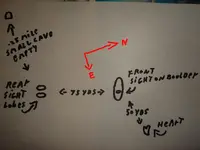 .25 MILE
SMALL CAVE
EMPTY
N
E
REAR
SIGHT
LOBES
75 YDS
FRONT
SIGHT ON BOULDER
50 YDS
HEART